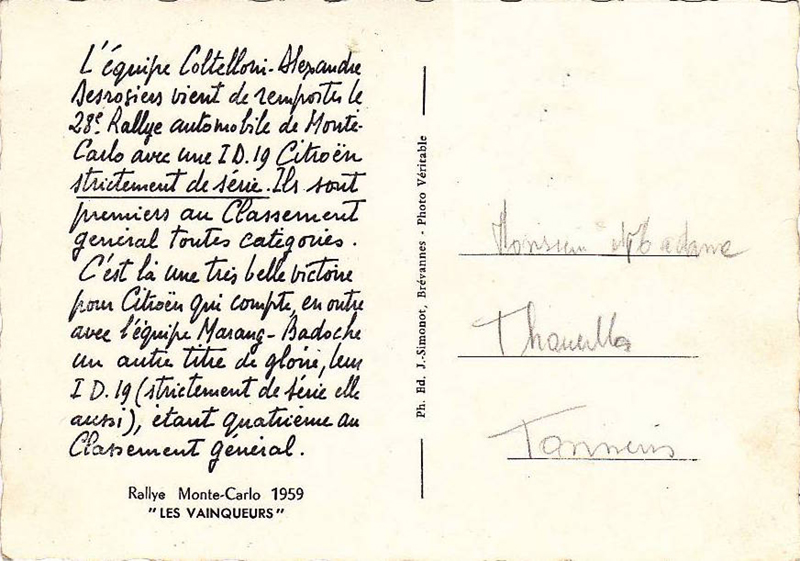 L'équipe Coltelloni-Alexandre
Desrosiers vient de remporter le
28e Rallye automobile de Monte-
Carlo avec une I D.19 Citroën
strictement de série. Ils sont
premiers au Classement
général toutes catégories.
C'est là une très belle victoire
pour Citroën qui compte, en outre
avec l'équipe Marang-Badoche
un autre titre de gloire, leur
I D.19 (strictement de série elle
aussi), étant quatrième au
Classement général.
Rallye Monte-Carlo 1959
"LES VAINQUEURS"
Ph. Ed. J.-Simonot, Brévannes - Photo Véritable
Monsieur Madame
Tonneins